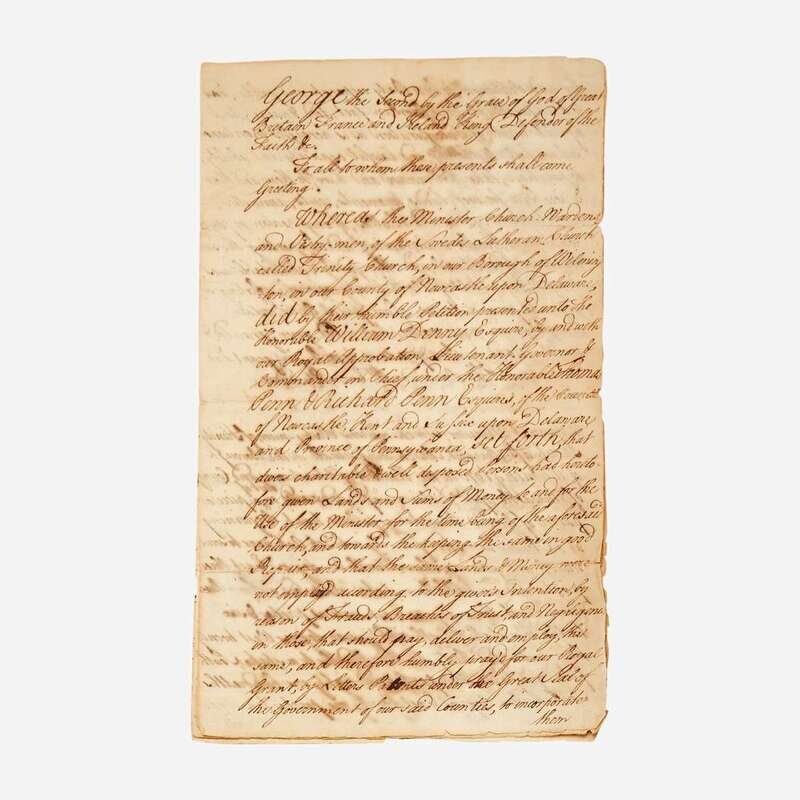 George the Second by the Grace of God of Great
Britain France and Ireland King Defender of the
Faith &c.
To all to whom these presents shall come
Greeting.
Whereas the Minister Church-Wardens
and Vestry-men, of the Sweeds Lutheran Church
called Trinity Church, in our Borough of Wilming
ton, in our County of Newcastle upon Delaware,
did by their humble Petition presented unto the
Honorable William Denny Esquire, by and with
our Royal Approbation, Lieutenant Governor &
Commander in Chief under the Honorable Thomas
Penn & Richard Penn Esquires, of the Counties
of Newcastle, Kent and Sussex upon Delaware
and Province of Pensylvania, set forth, that
divers charitable & well disposed Persons had hereto
fore given Lands and Sums of Money & and for the
Use of the Minister for the time being of the aforesaid
Church, and towards the keeping the same in good
Repair, and that the same Lands & Money were
not applied according to the givers Intention, by
reason of Frauds, Breaches of Trust, and Negligence
in those, that should pay, deliver and employ, the
same, and therefore humbly pray'd for our Royal
Grant, by Letters Patents under the Great Seal of
the Government of our said Counties, to incorporate
them